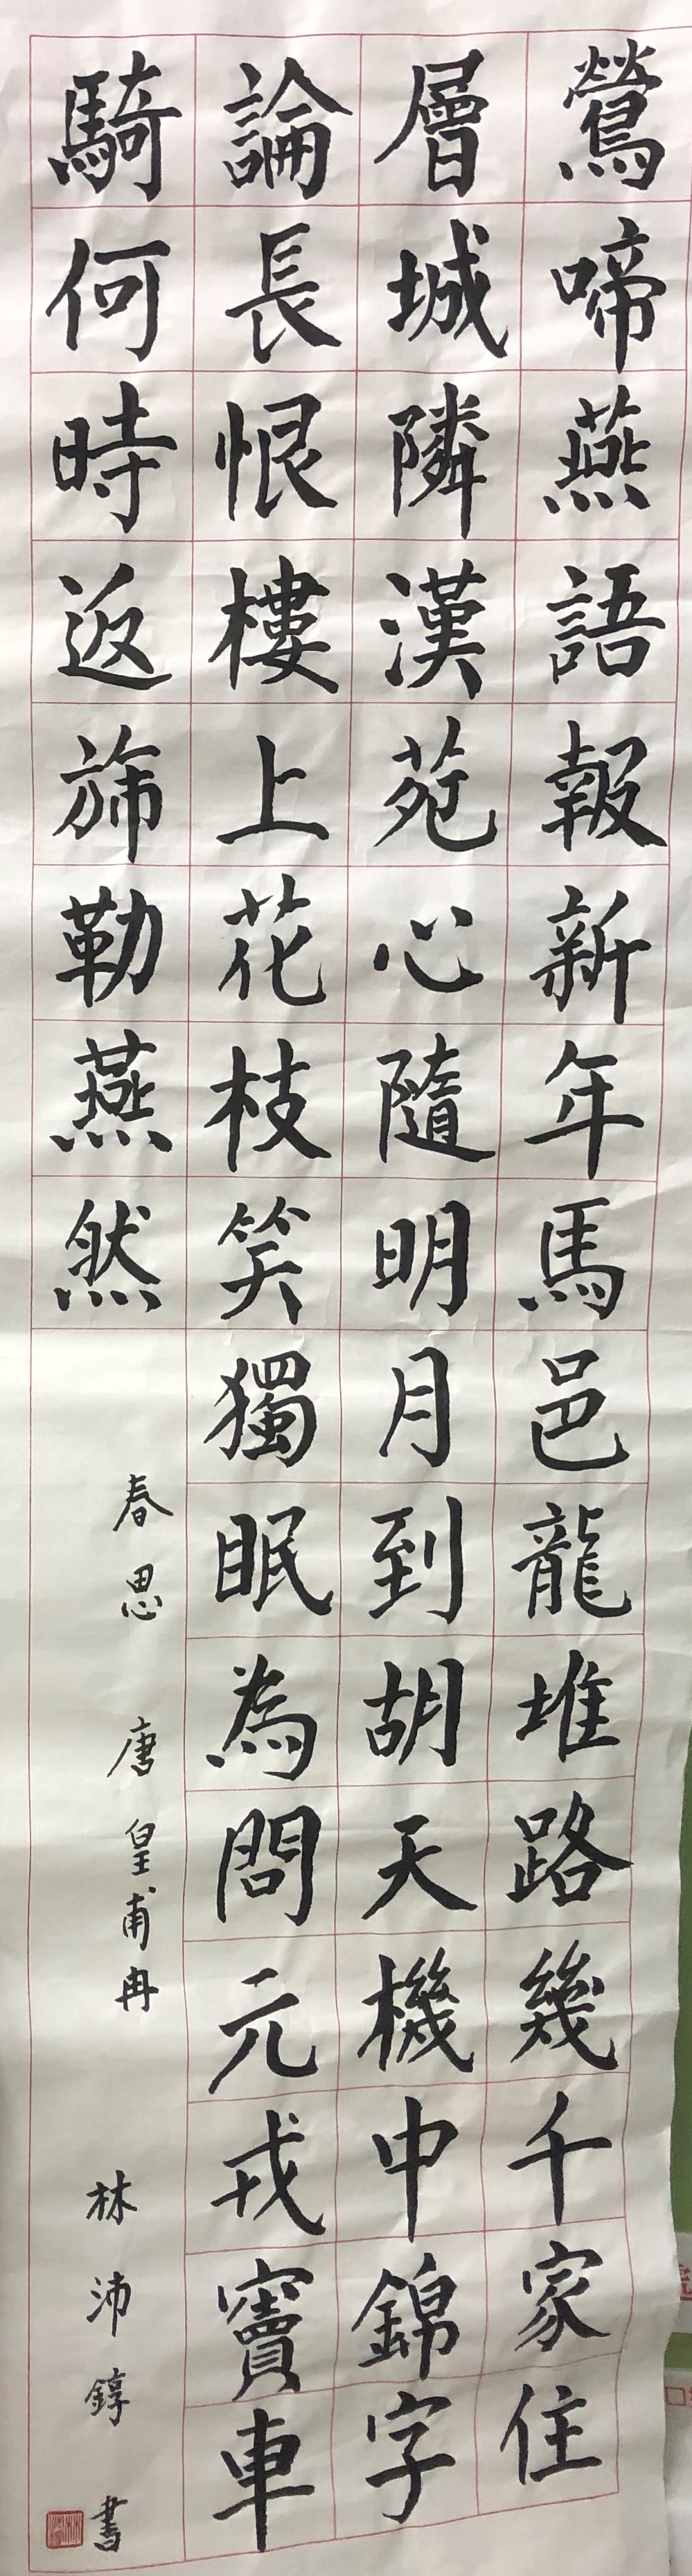 鶯啼燕語報新年馬邑龍堆路幾千家住
層城隣漢苑心隨明月到胡天機中錦字
論長恨樓上花枝笑獨眠為問元戎竇車
騎何時返旆勒燕然
春思 唐 皇甫冉 林沛錞 書